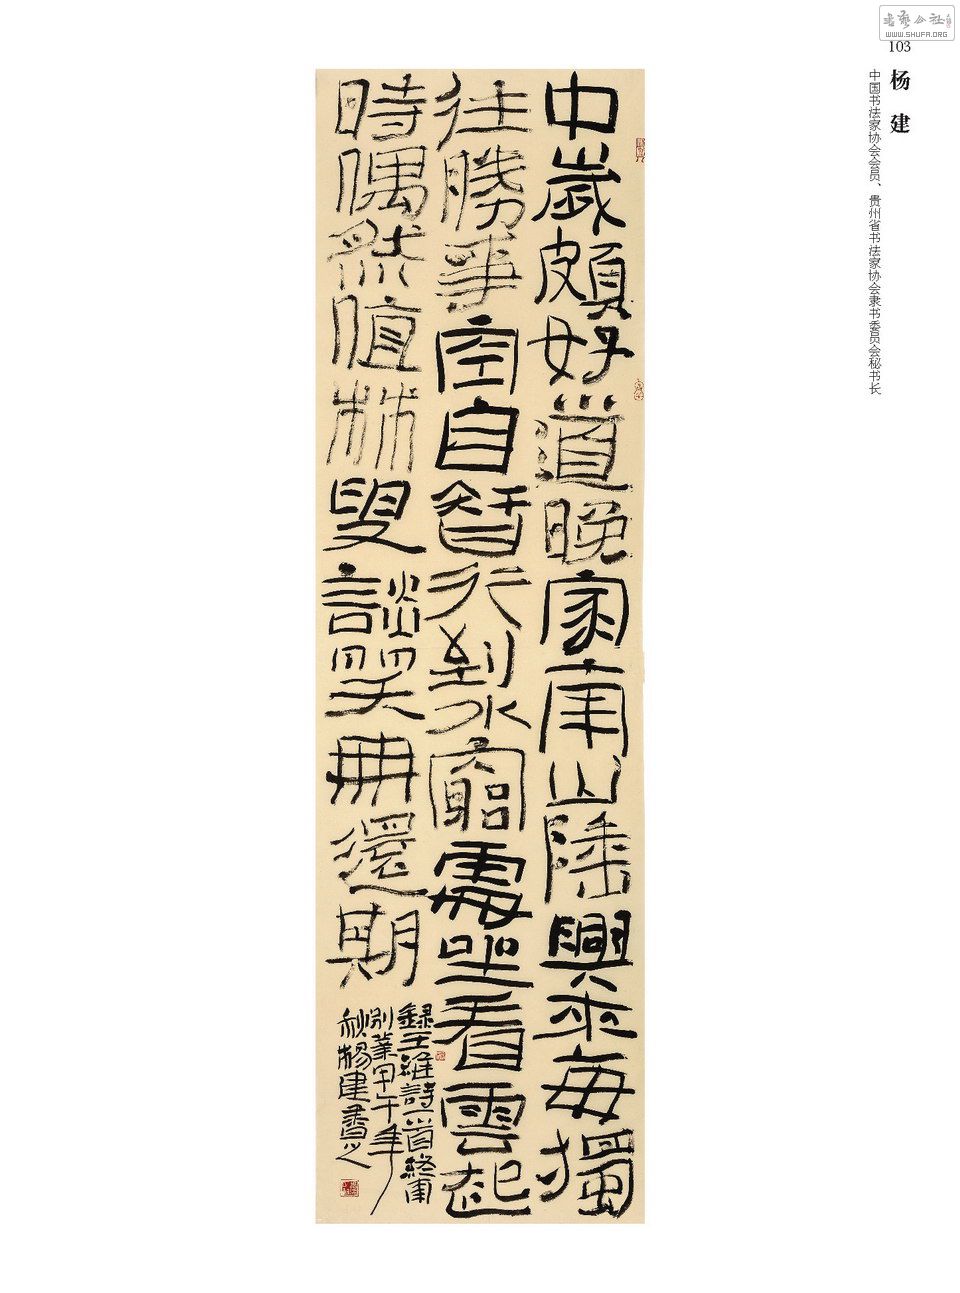 书艺公社
WWW.SHUFA.ORG
103
杨建
中国书法家协会会员、贵州省书法家协会隶书委员会秘书长
中歲頗好道晚家南山陲興來每獨
往勝事空自智行到水窮處坐看雲起
時偶然值林叟談笑無還期
録王維詩一首終南
别業甲午年
秋楊建書之